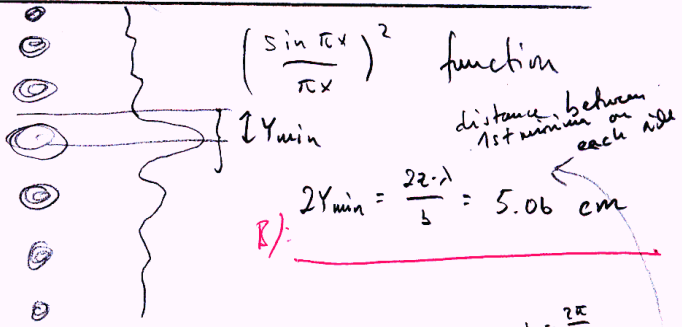 (sin πx / πx)² function
↕ Ymin
distance between
1st minima on
each side
2Ymin = 2z·λ / b = 5.06 cm
B):
2π